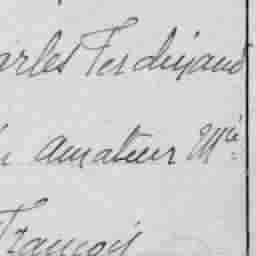 arles Ferdinand
amateur Mie
François